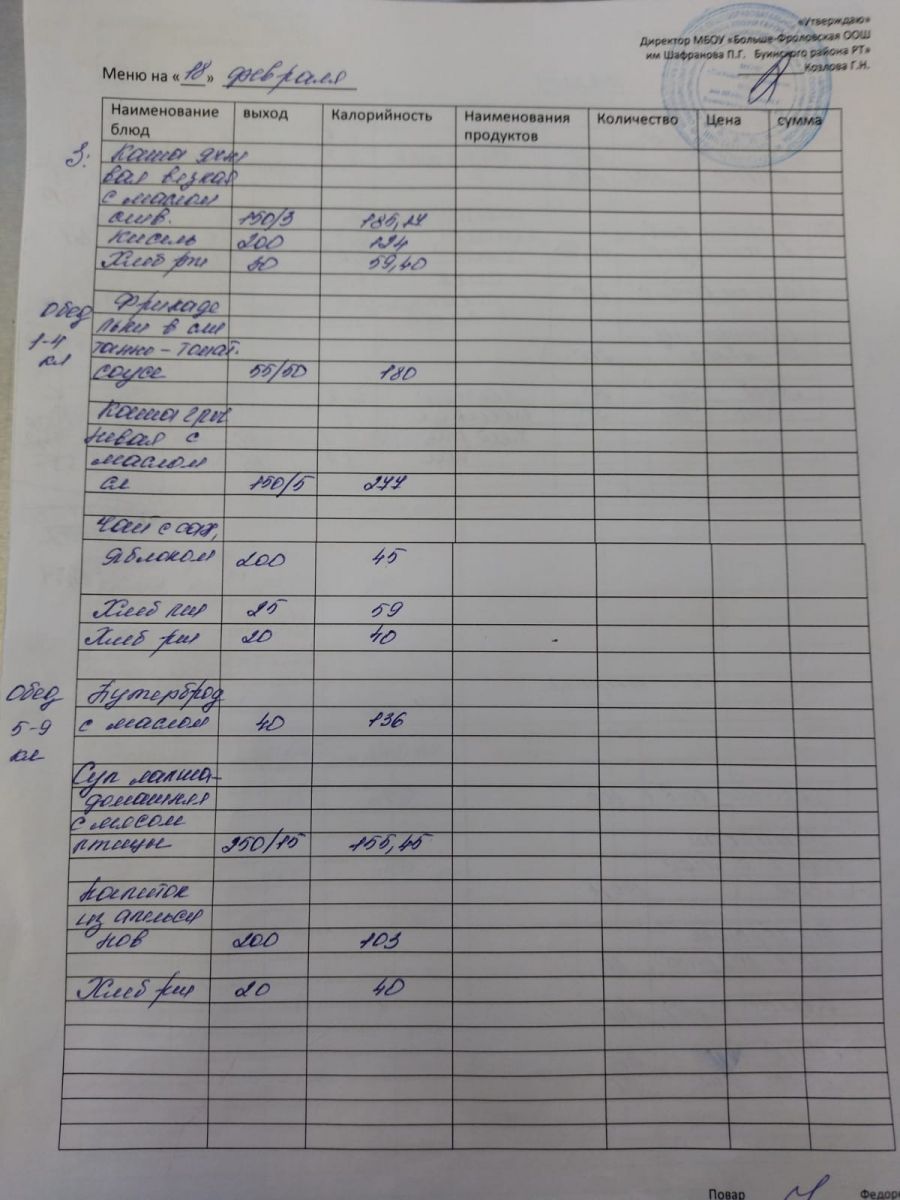 «Утверждаю»
Директор МБОУ «Больше-Фроловская ООШ
им Шафранова П.Г. Буинского района РТ»
Козлова Г.Н.
Меню на « 18 » февраля
Наименование блюд выход Калорийность Наименования продуктов Количество Цена сумма
З: Каша ячне
вая вязкая
с маслом
слив. 150/3 185,17
Кисель 200 124
Хлеб рж 30 59,40
Обед Фрикаде
1-4 льки в сме
кл танно-томат.
соусе 55/50 180
Каша греч
невая с
маслом
сл 150/5 277
Чай с сах,
яблоком 200 45
Хлеб пш 25 59
Хлеб рж 20 40
Обед Бутерброд
5-9 с маслом 40 136
кл
Суп лапша-
домашняя
с мясом
птицы 250/15 155,45
Напиток
из апельси
нов 200 103
Хлеб рж 20 40
Повар Федор